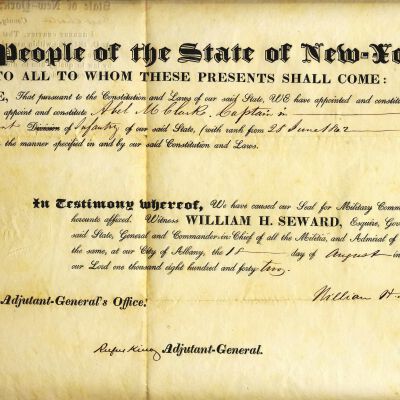 People of the State of New-Yo
TO ALL TO WHOM THESE PRESENTS SHALL COME:
E, That pursuant to the Constitution and Laws of our said State, WE have appointed and constit
appoint and constitute Abel M Clark, Captain in
Division of Infantry of our said State, (with rank from 28 June 1842
the manner specified in and by our said Constitution and Laws.
In Testimony whereof, We have caused our Seal for Military Comm
hereunto affixed. Witness WILLIAM H. SEWARD, Esquire, Gov
said State, General and Commander-in-Chief of all the Militia, and Admiral of
the same, at our City of Albany, the 18 day of August in
our Lord one thousand eight hundred and forty two.
William H.
Adjutant-General's Office:
Rufus King Adjutant-General.